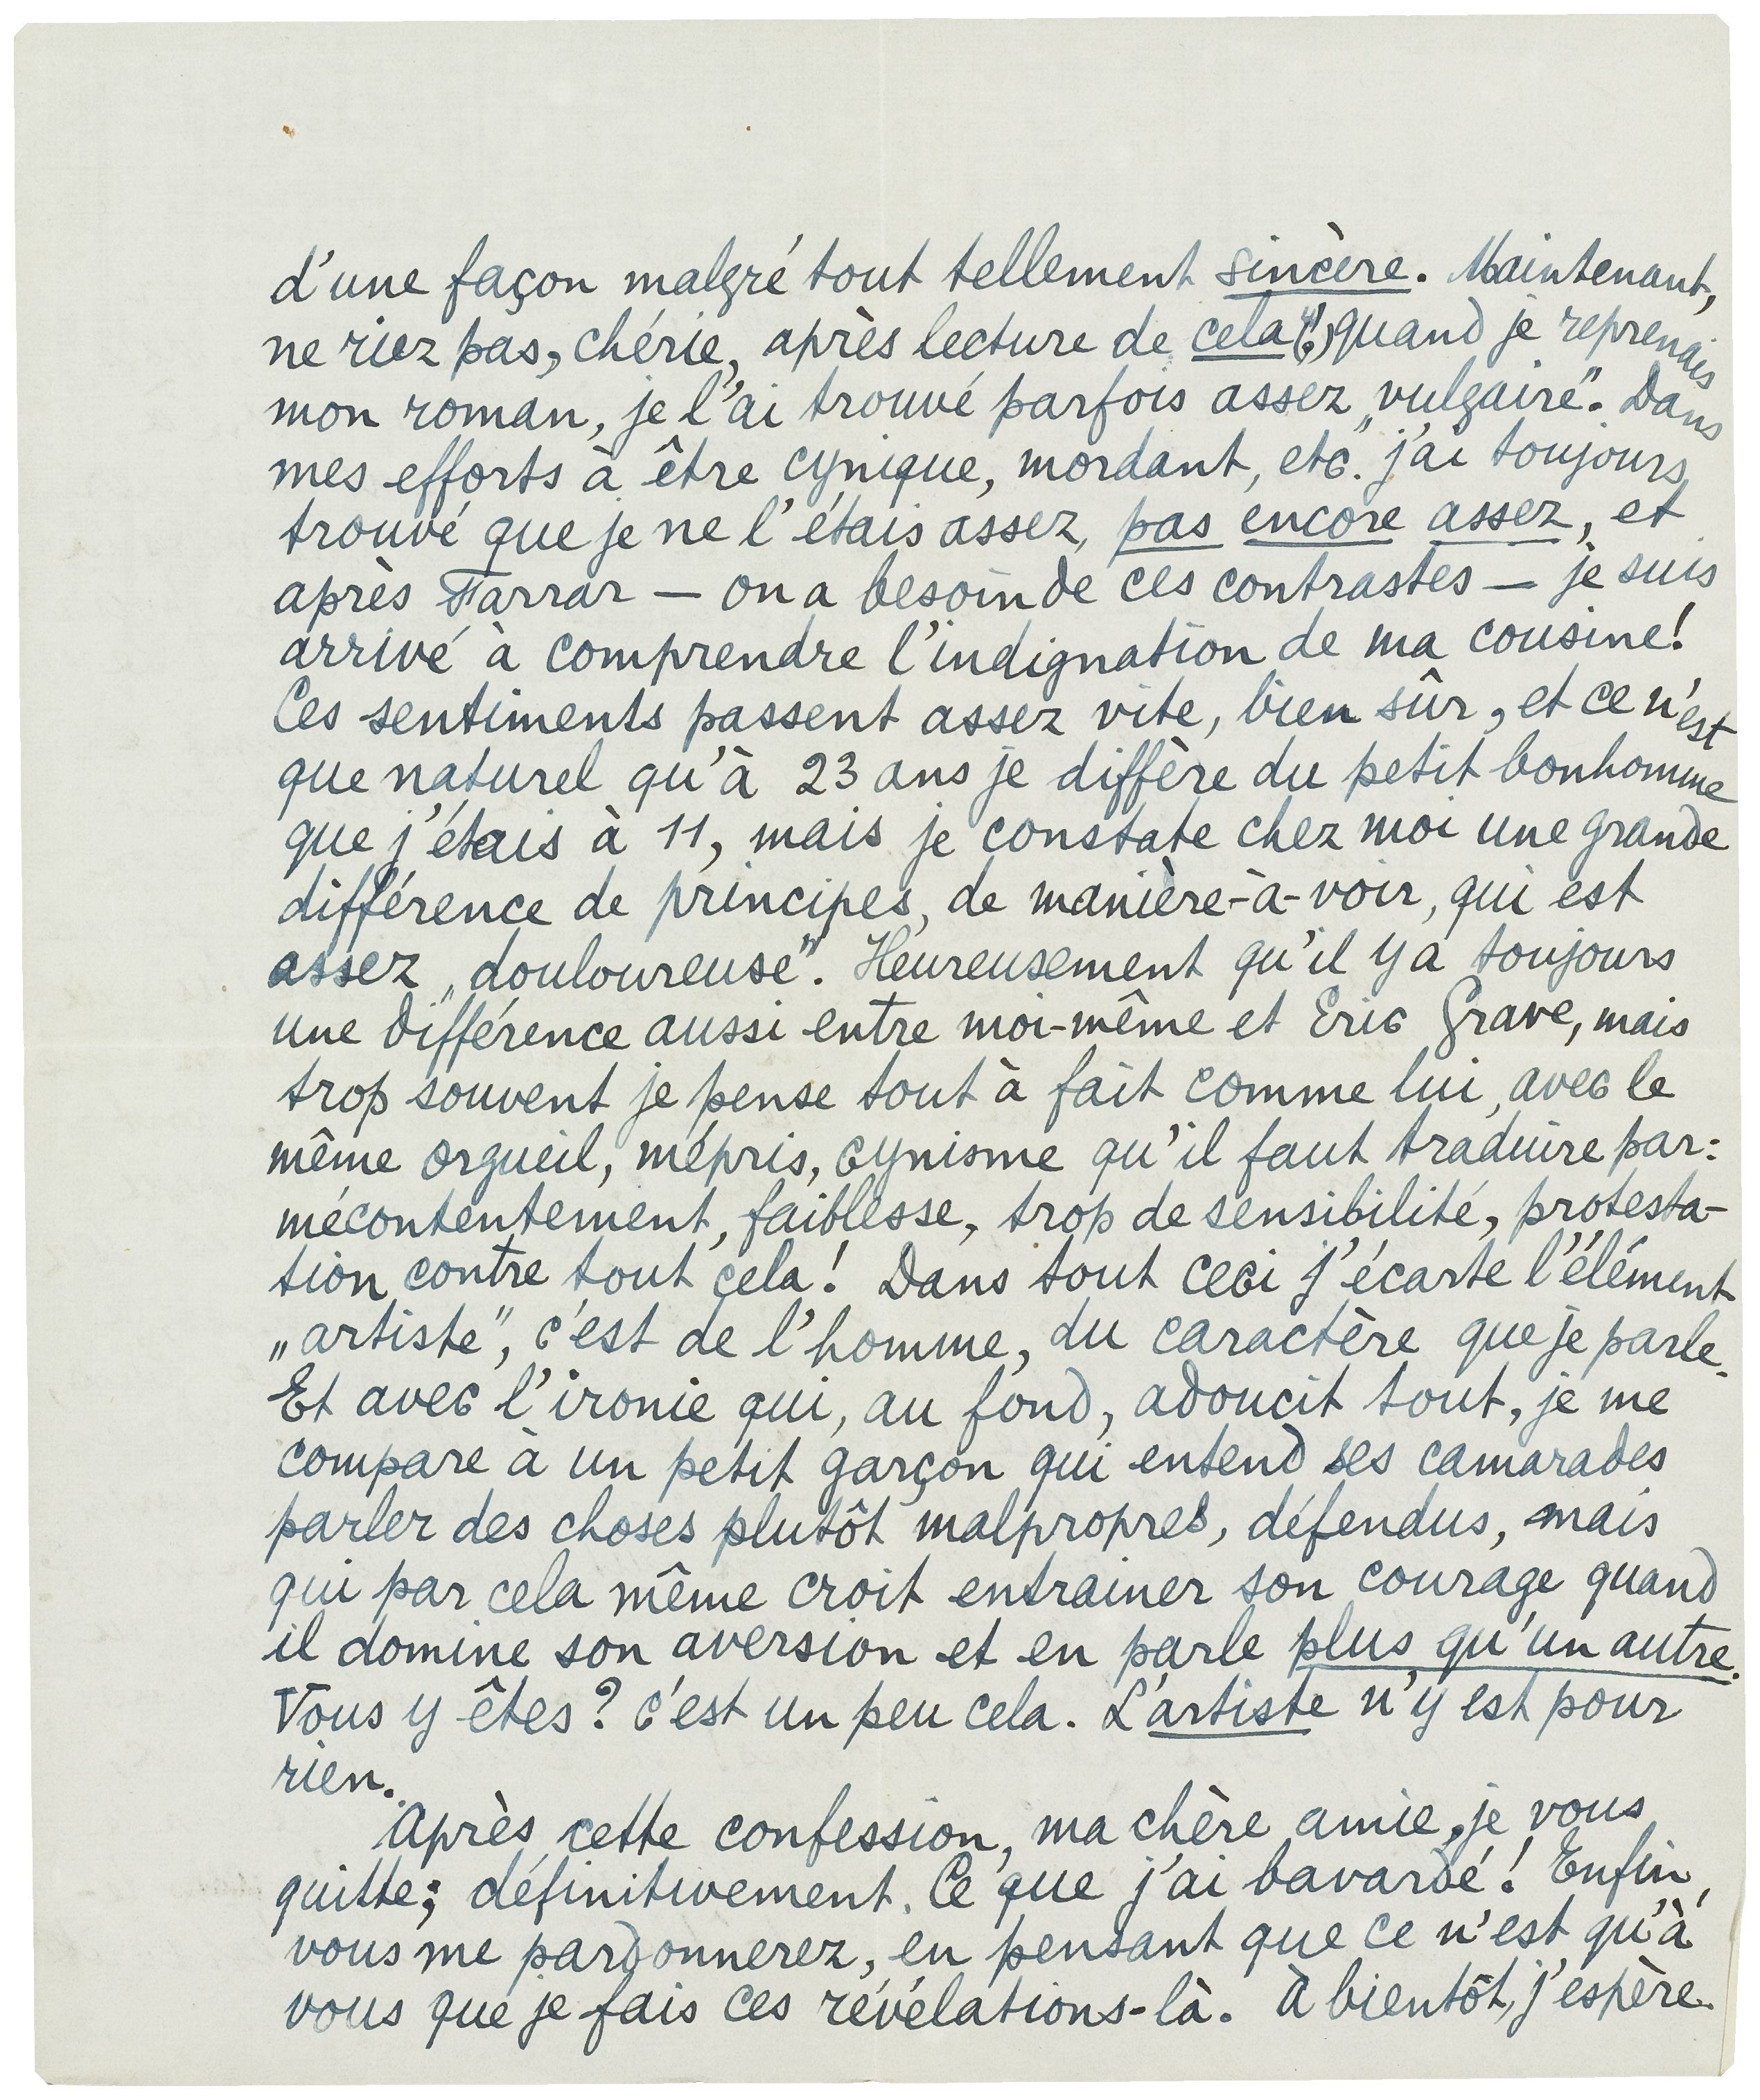 d'une façon malgré tout tellement sincère. Maintenant,
ne riez pas, chérie, après lecture de cela (!), quand je reprenais
mon roman, je l'ai trouvé parfois assez „vulgaire". Dans
mes efforts à être cynique, mordant, etc. j'ai toujours
trouvé que je ne l'étais assez, pas encore assez, et
après Farrar — on a besoin de ces contrastes — je suis
arrivé à comprendre l'indignation de ma cousine!
Ces sentiments passent assez vite, bien sûr, et ce n'est
que naturel qu'à 23 ans je diffère du petit bonhomme
que j'étais à 11, mais je constate chez moi une grande
différence de principes, de manière-à-voir, qui est
assez „douloureuse". Heureusement qu'il y a toujours
une différence aussi entre moi-même et Eric Grave, mais
trop souvent je pense tout à fait comme lui, avec le
même orgueil, mépris, cynisme qu'il faut traduire par:
mécontentement, faiblesse, trop de sensibilité, protesta-
tion contre tout cela! Dans tout ceci j'écarte l'élément
„artiste", c'est de l'homme, du caractère que je parle.
Et avec l'ironie qui, au fond, adoucit tout, je me
compare à un petit garçon qui entend ses camarades
parler des choses plutôt malpropres, défendus, mais
qui par cela même croit entrainer son courage quand
il domine son aversion et en parle plus qu'un autre.
Vous y êtes? c'est un peu cela. L'artiste n'y est pour
rien.
Après cette confession, ma chère amie, je vous
quitte; définitivement. Ce que j'ai bavardé! Enfin,
vous me pardonnerez, en pensant que ce n'est qu'à
vous que je fais ces révélations-là. À bientôt, j'espère.